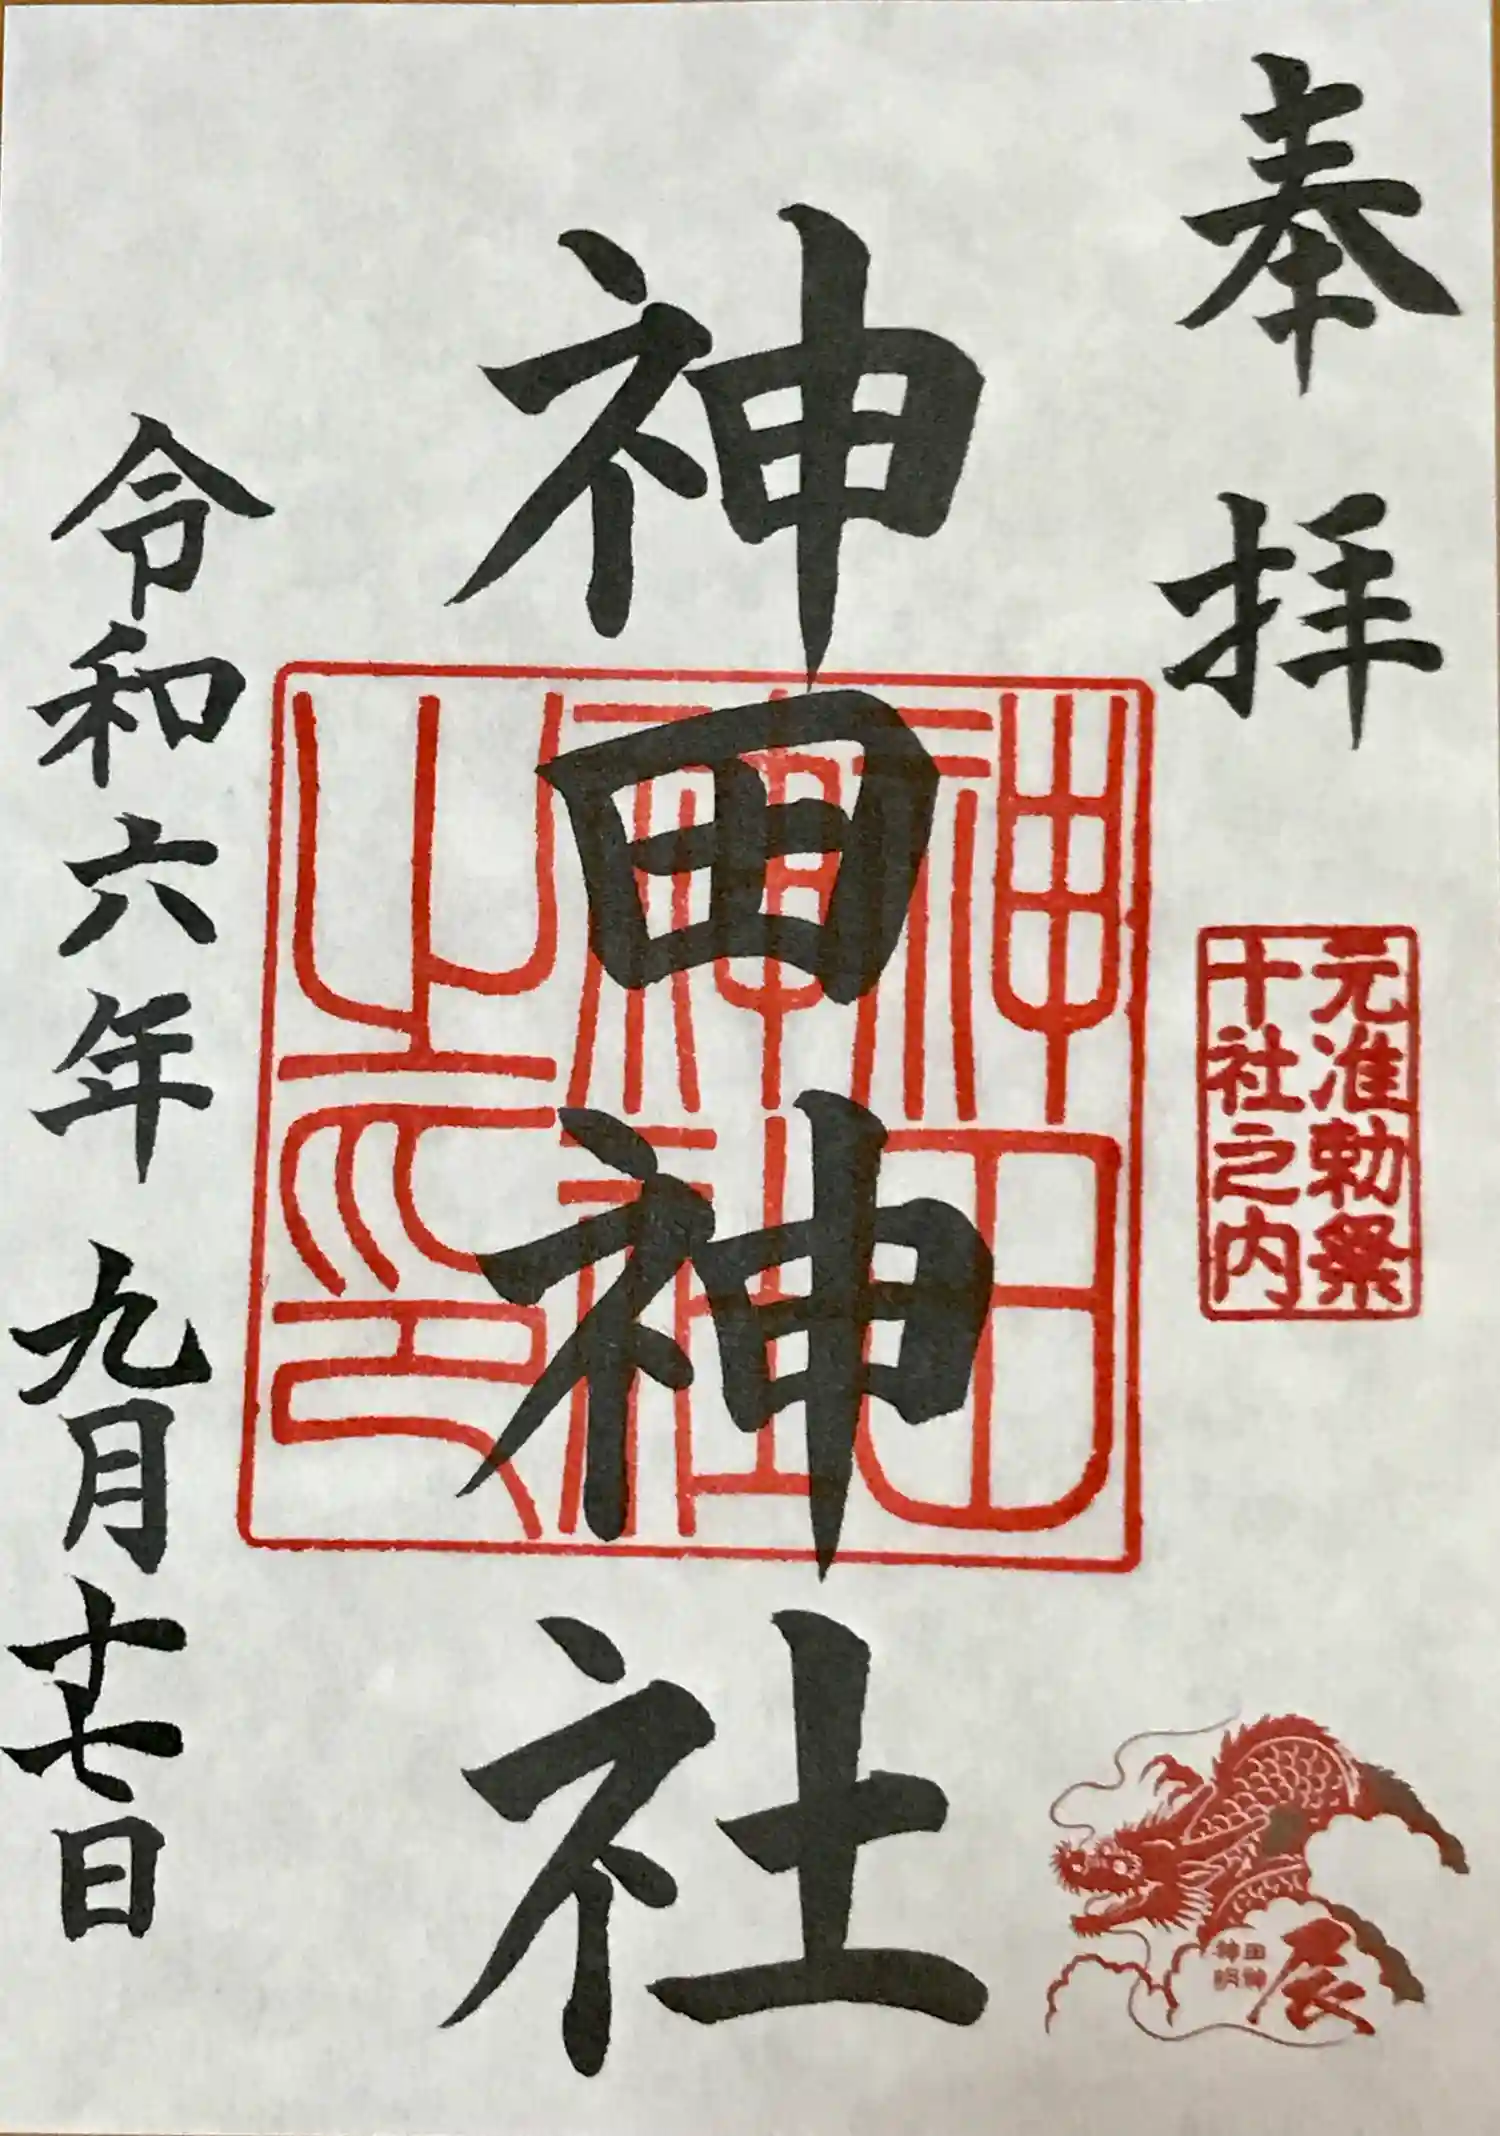 奉拝
元准勅祭
十社之内
神田神社
神田
神社
之印
令和六年九月十七日
辰
神田
明神